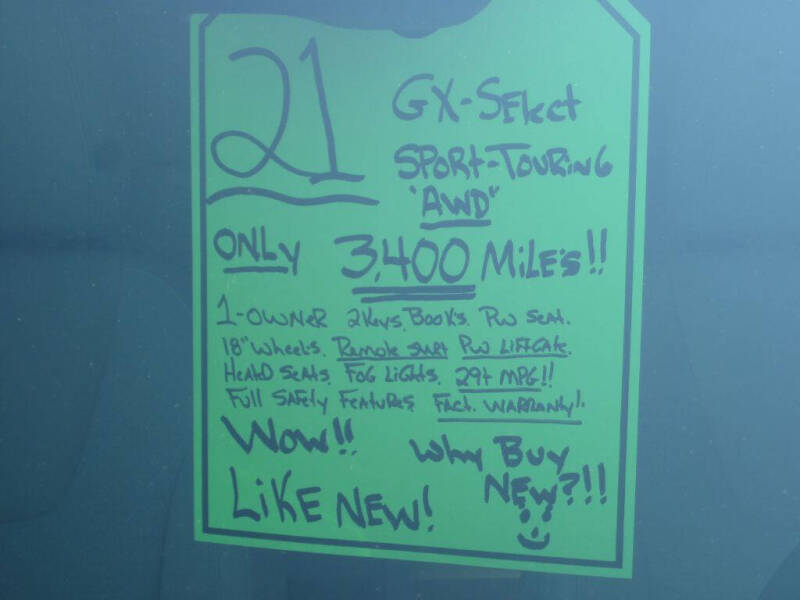 21
GX-SElect
SPORt-TOURING
"AWD"
ONLY 3,400 MiLE'S!!
1-OWNER 2Keys, Book's. Pw SEAt.
18" wheels. Remote start Pw LiFtGAte.
HeAtD SeAts. FOG LiGHts. 29+ MPG!!
Full SAFety FeAtuRes FAct. WARRANty!!
Wow!! Why Buy
LiKE NEW! NEW?!!